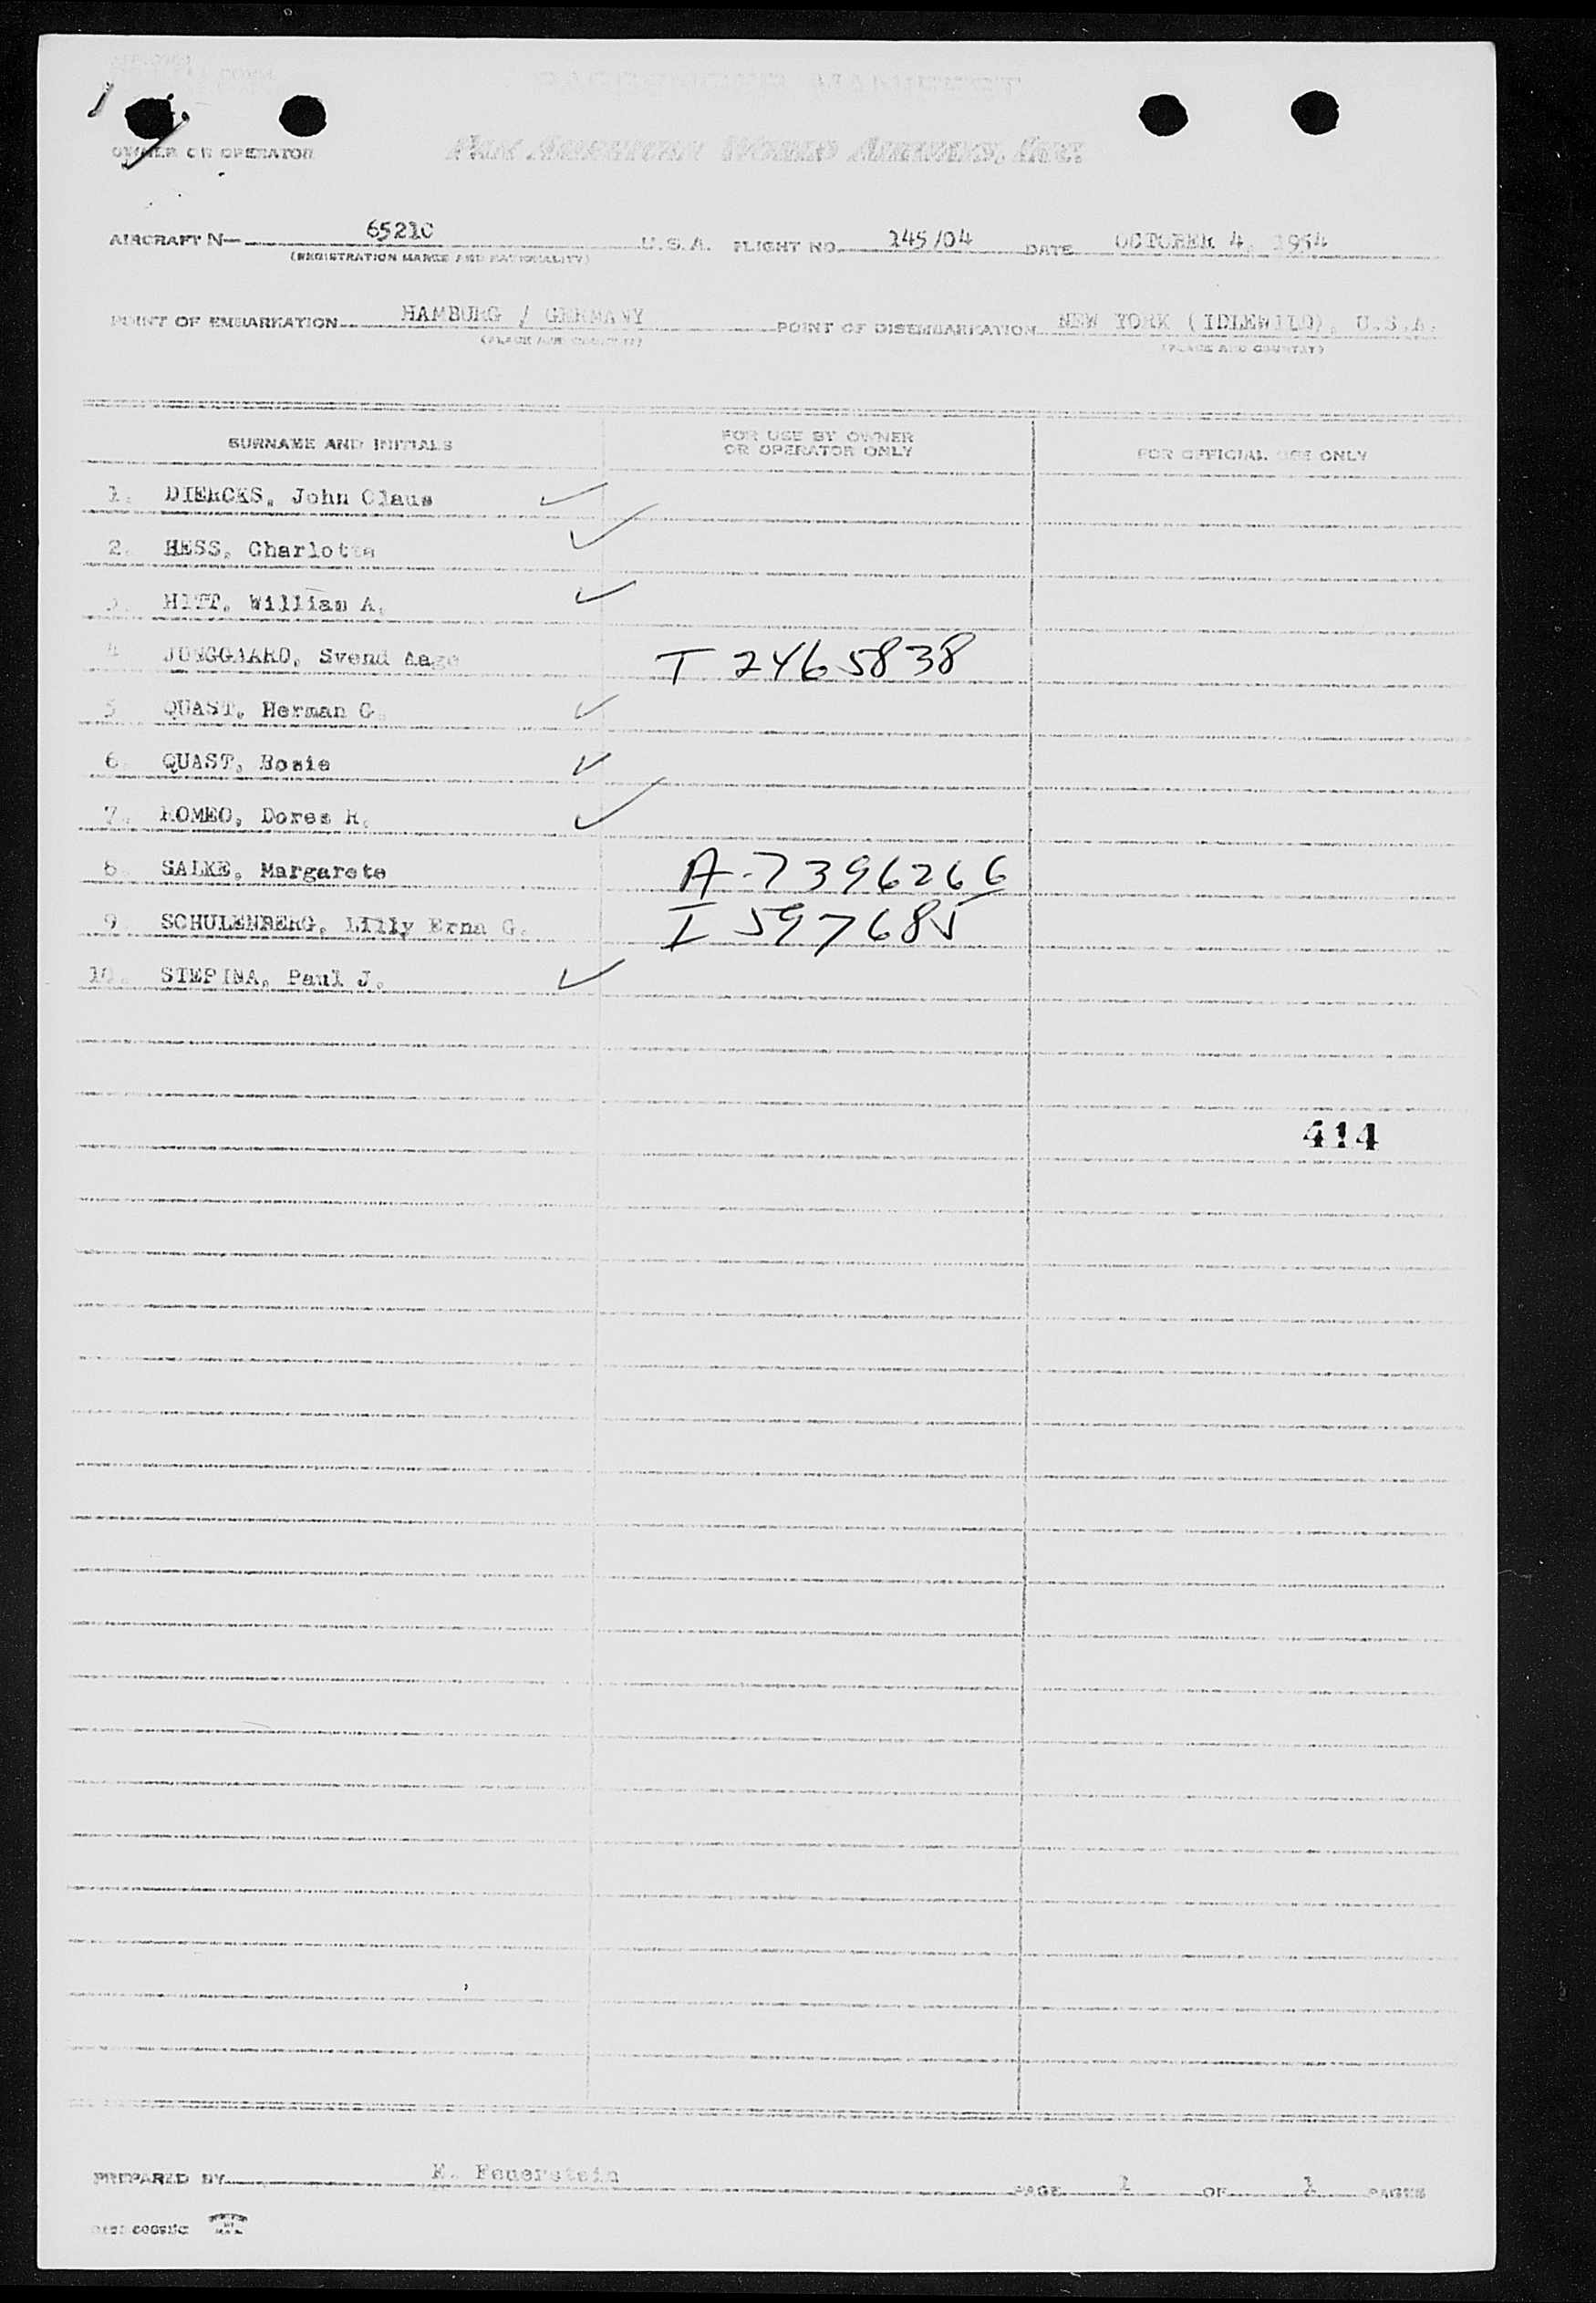 PASSENGER MANIFEST
OWNER OR OPERATOR PAN AMERICAN WORLD AIRWAYS, INC.
AIRCRAFT N- 6521C U.S.A. FLIGHT NO. 145/04 DATE OCTOBER 4, 1954
(REGISTRATION MARKS AND NATIONALITY)
POINT OF EMBARKATION HAMBURG / GERMANY POINT OF DISEMBARKATION NEW YORK (IDLEWILD), U.S.A.
(PLACE AND COUNTRY) (PLACE AND COUNTRY)
SURNAME AND INITIALS FOR USE BY OWNER OR OPERATOR ONLY FOR OFFICIAL USE ONLY
1. DIERCKS, John Claus ✓
2. HESS, Charlotte ✓
3. HITT, William A. ✓
4 JUNGGAARD, Svend Aage T 2465838
5 QUAST, Herman G. ✓
6. QUAST, Rosie ✓
7. ROMEO, Dores R. ✓
8. SALKE, Margarete A-7396266
9. SCHULENBERG, Lilly Erna G. I 597685
10. STEPINA, Paul J. ✓
414
PREPARED BY E. Feuerstein PAGE 1 OF 1 PAGES